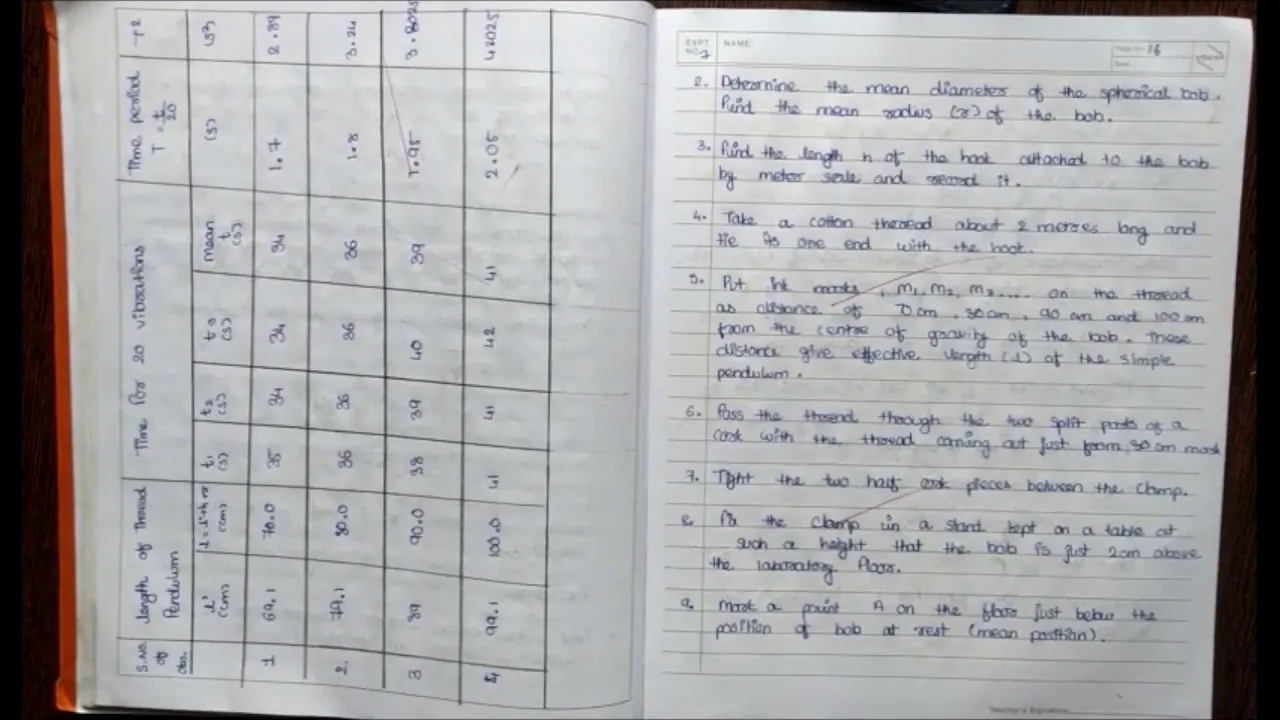 S.No. of obs. | Length of Thread Pendulum | Time for 20 vibrations | Time period T = t/20 | T2
l' (cm) | l = l'+h+r (cm) | t1 (s) | t2 (s) | t3 (s) | mean t (s) | (s) | (s2)
1 | 69.1 | 70.0 | 35 | 34 | 34 | 34 | 1.7 | 2.89
2. | 79.1 | 80.0 | 36 | 36 | 36 | 36 | 1.8 | 3.24
3 | 89 | 90.0 | 38 | 39 | 40 | 39 | 1.95 | 3.8025
4 | 99.1 | 100.0 | 41 | 41 | 42 | 41 | 2.05 | 42025
EXPT. NO. 7 NAME: Page No. 16
Date
2. Determine the mean diameter of the spherical bob.
Find the mean radius (r) of the bob.
3. Find the length h of the hook attached to the bob
by meter scale and record it.
4. Take a cotton thread about 2 metres long and
tie its one end with the hook.
5. Put ink marks, M1, M2, M3.... on the thread
as distance of 70 cm, 80 cm, 90 cm and 100 cm
from the centre of gravity of the bob. These
distance give effective length (l) of the simple
pendulum.
6. Pass the thread through the two split parts of a
cork with the thread coming out just from, 80 cm mark
7. Tight the two half cork pieces between the clamp.
8. Fix the clamp in a stand kept on a table at
such a height that the bob is just 2cm above
the laboratory floor.
9. Mark a point A on the floor just below the
position of bob at rest (mean position).
Teacher's Signature